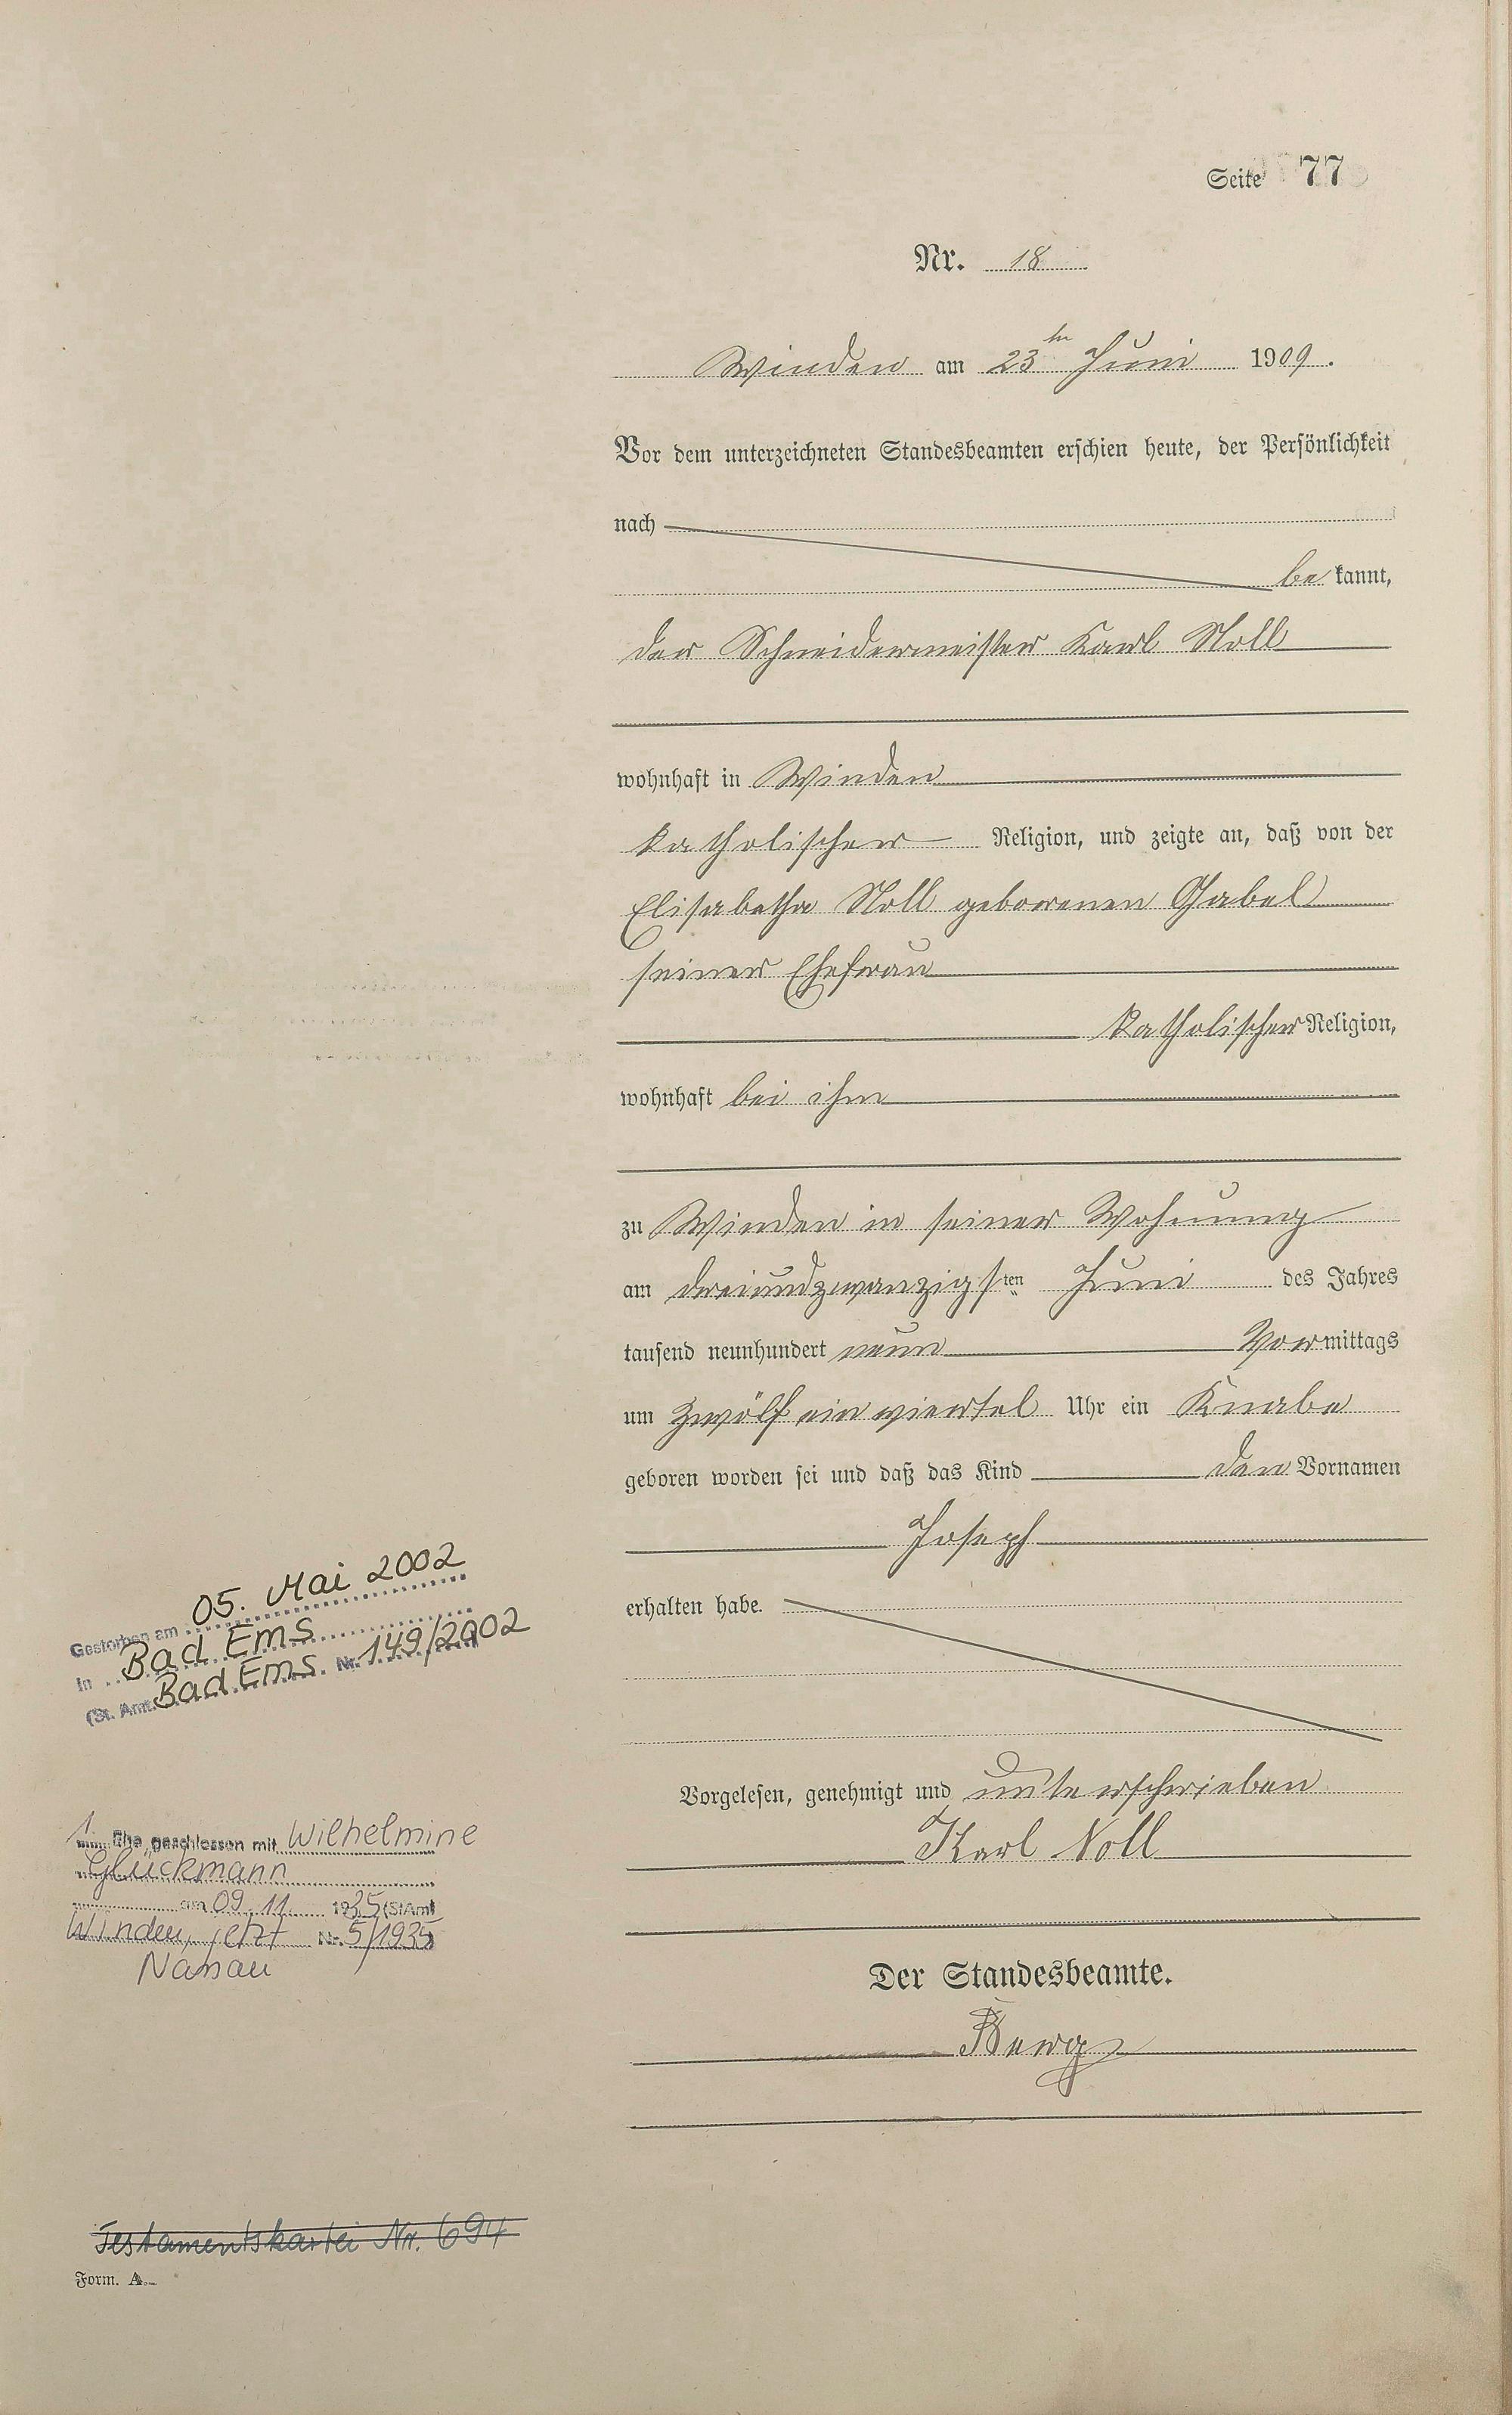 Seite 77
Nr. 18
Winden am 23ten Juni 1909.
Vor dem unterzeichneten Standesbeamten erschien heute, der Persönlichkeit
nach
be kannt,
der Schneidermeister Karl Noll
wohnhaft in Winden
katholischer Religion, und zeigte an, daß von der
Elisabetha Noll geborenen Gabel
seiner Ehefrau
katholischer Religion,
wohnhaft bei ihm
zu Winden in seiner Wohnung
am dreiundzwanzigsten Juni des Jahres
tausend neunhundert neun Vormittags
um zwölf ein viertel Uhr ein Knabe
geboren worden sei und daß das Kind den Vornamen
Joseph
erhalten habe.
Vorgelesen, genehmigt und unterschrieben
Karl Noll
Der Standesbeamte.
Gestorben am 05. Mai 2002
In Bad Ems
(St. Amt Bad Ems Nr. 149/2002
1. Ehe geschlossen mit Wilhelmine
Glückmann
am 09.11. 1935 (StAmt
Winden, jetzt Nr. 5/1935)
Nassau
Testamentskartei Nr. 694
Form. A.